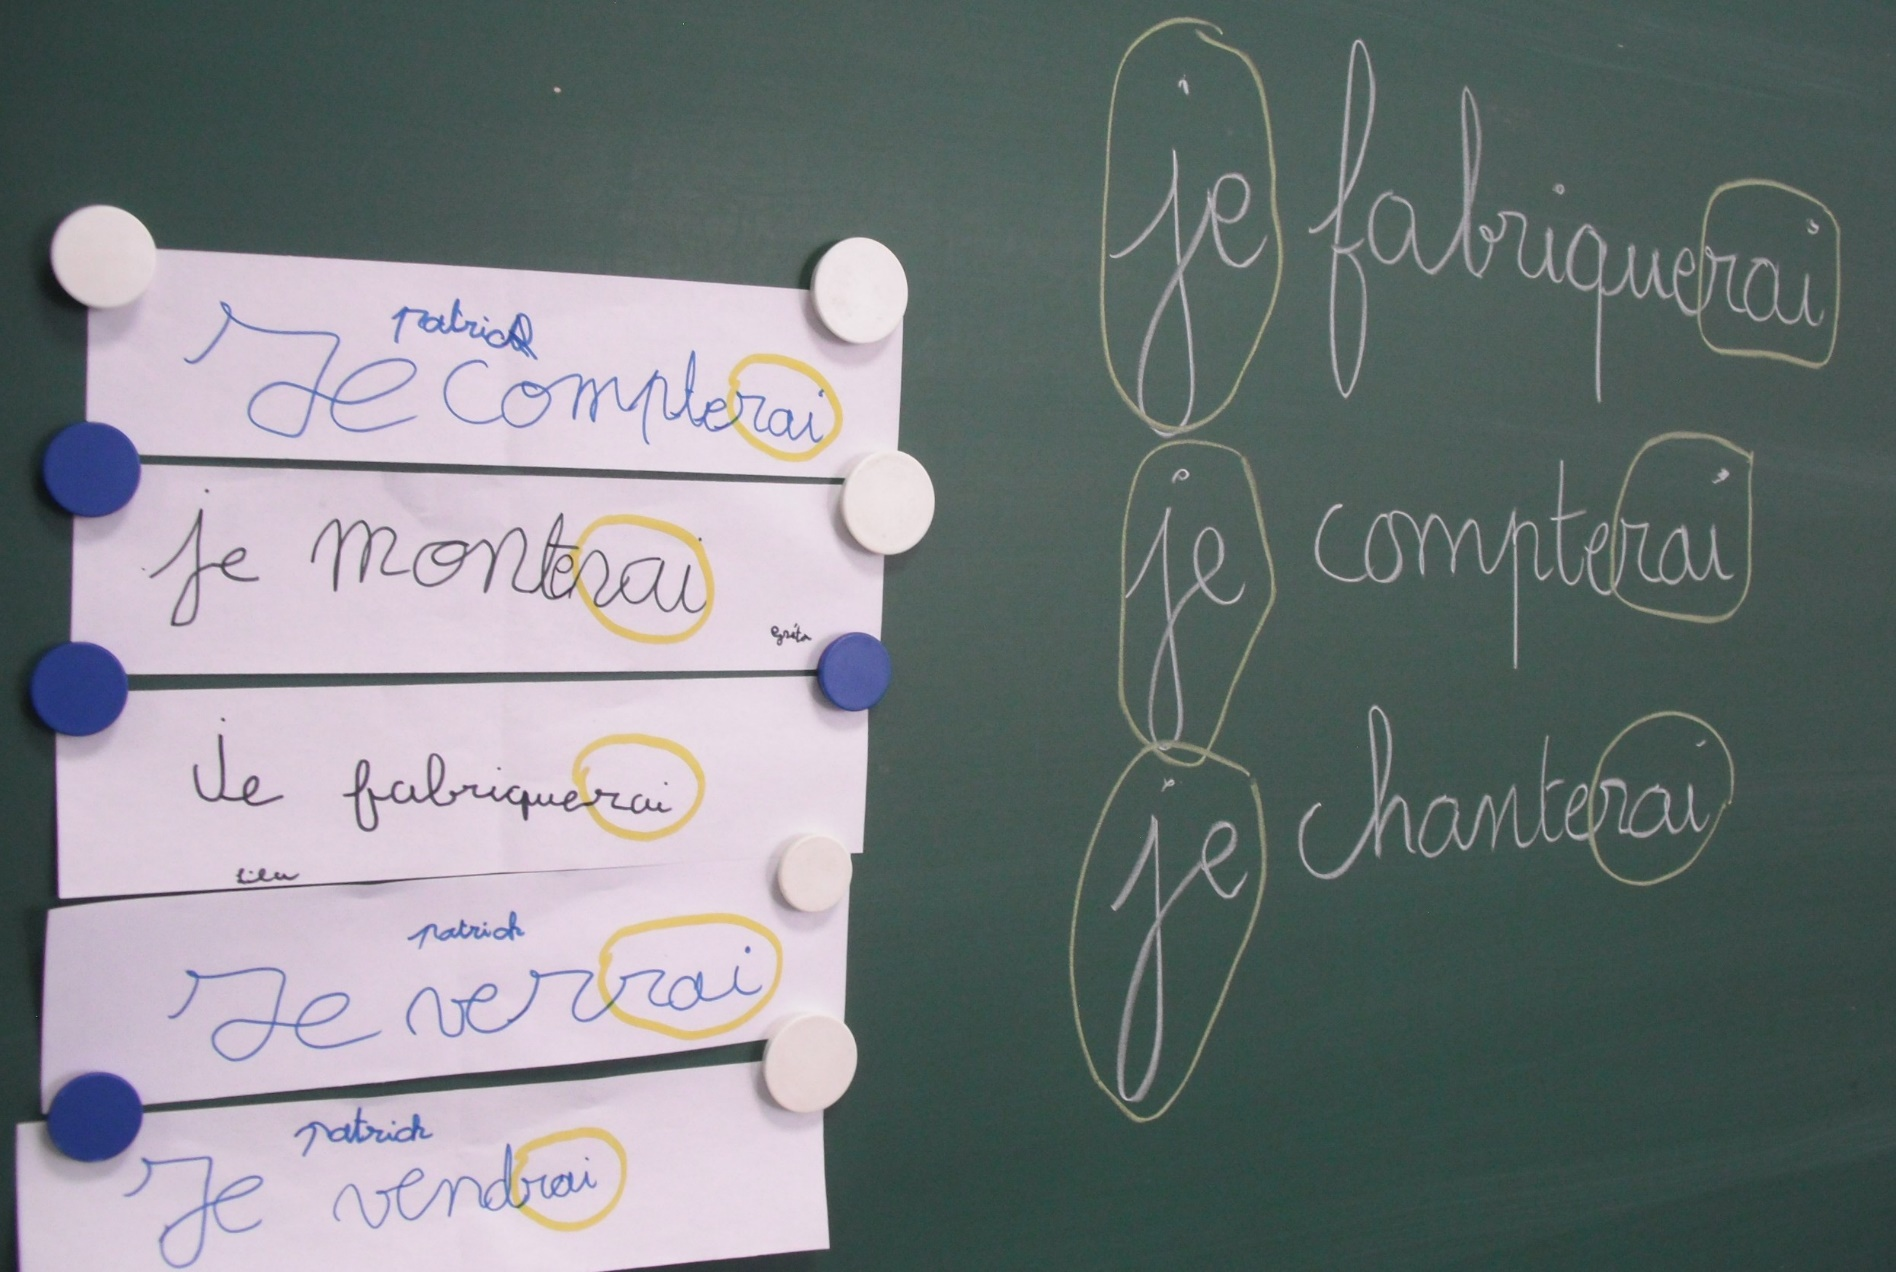 patrick
Je compterai
je monterai
Gréta
Je fabriquerai
Lilou
patrick
Je verrai
patrick
Je vendrai
je fabriquerai
je compterai
je chanterai